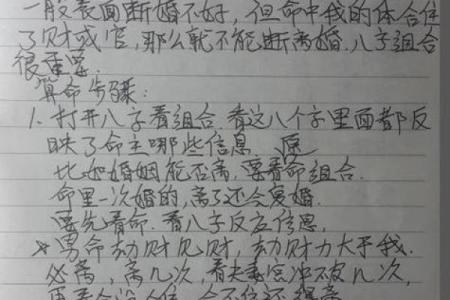 一般表面断婚不好,但命中我的体合住
了财或官,那么就不能断离婚.八字组合
很重要.
算命步骤:
1.打开八字看组合.看这八个字里面都反
映了命主哪些信息
比如婚姻能否离,要看命组合.
命里一次婚的,离了还会复婚.
要先看命.看八字反应信息,
*男命劫财见财,劫财力大于我.
必离,离几次,看夫妻宫冲不及几次,